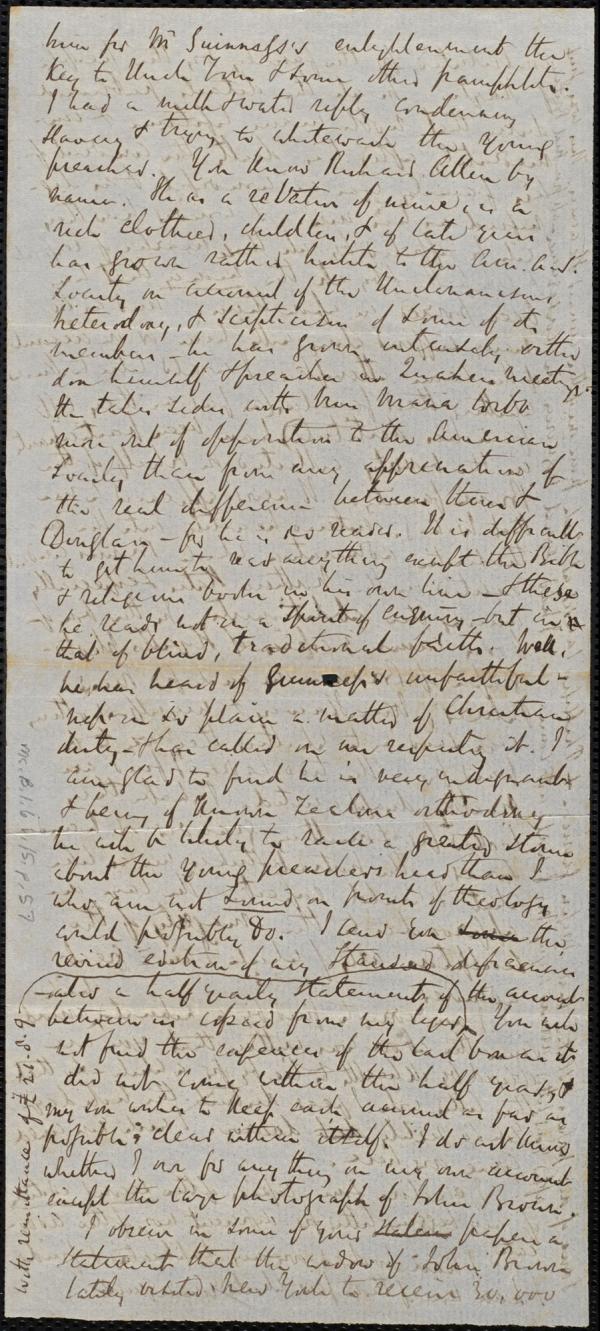 him for Mr Guinness's enlightenment the
Key to Uncle Tom & some other pamphlets.
I had a milk & water reply condemning
slavery & trying to whitewash the young
preacher. You know Richard Allen by
name. He is a relation of mine, is a
rich clothier, children, & of late years
has grown rather hostile to the Am. A.S.
Society on account of the
heterodoxy, & scepticism of some of its
members - he has grown intensely ortho
dox himself & preaches in Quaker meetings.
He takes sides with Miss Maria Webb
more out of opposition to the American
Society, than from any appreciation of
the real difference between them &
Douglass - for he is no reader. It is difficult
to get him to read anything except the Bible
& religious books in his own line - & these
he reads not in a spirit of enquiry - but in
that of blind, traditional faith. Well,
he has heard of Guinness's unfaithful-
ness in so plain a matter of Christian
duty - & has called on me respecting it. I
am glad to find he is very indignant
& being of known zealous orthodoxy
he will be likely to raise a greater storm
about the young preacher's head than I
who am not sound on points of theology
could possibly do. I send you the
revised edition of my Standard
a half yearly statement of the accounts
between us copied from my ledger. You will
not find the expenses of the last box as it
did not come within the half year, &
my son wishes to keep each account as far as
possible clear within itself. I do not know
whether I owe for anything on my own account
except the large photograph of John Brown.
I observe in some of your papers a
statement that the widow of John Brown
lately visited New York to receive 30,000
with remittance of £21.8.9
Ms.B.1.6 p.57